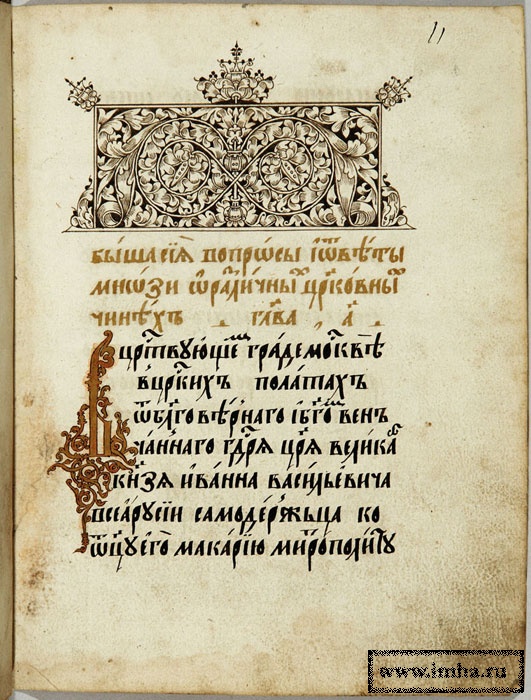 11
быша сиѧ вопрѡсы і ѿвѣты
мнѡзи ѡ разлі́чны црко́вны
чинѣхъ глава а҃
В црⷭтвующе граде москвѣ
в црⷭкихъ полатахъ
ѿ бл҃говѣрнаго і бг҃ом вен
чаннаго гдⷭрѧ царѧ велика
кнѧзѧ иванна васильевича
всеа русии самодержьца ко
ѿцу его макарию митрополиту
www.imha.ru